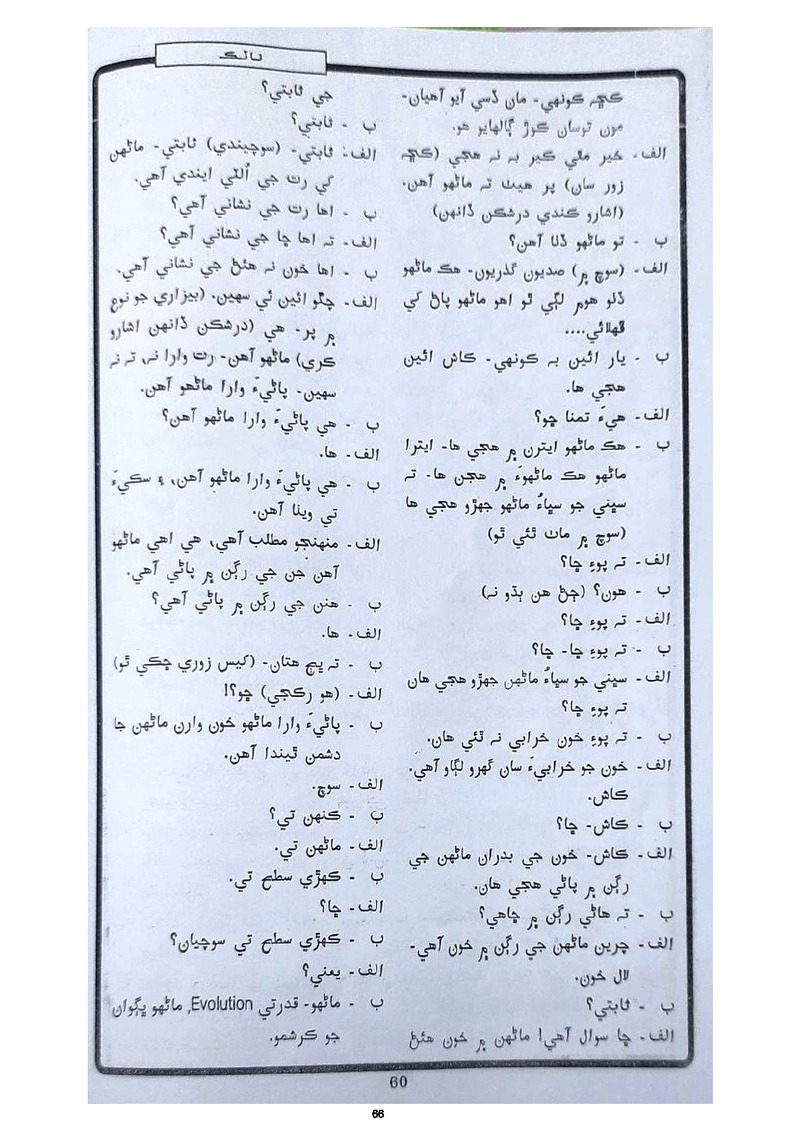 ناٽڪ
ڪجهہ ڪونهي- مان ڏسي آيو آهيان-
مون ترسان ڪوڙ ڳالهايو هو.
الف- خير ملي ڪير بہ نہ هجي (ڪجهہ
زور سان) پر هيٺ تہ ماڻهو آهن.
(اشارو ڪندي درشڪن ڏانهن)
ب - تو ماڻهو ڏٺا آهن؟
الف- (سوچ ۾) صديون گذريون- هڪ ماڻهو
ڏٺو هوم لڳي ٿو اهو ماڻهو پاڻ کي
ڦهلائي....
ب - يار ائين بہ ڪونهي- ڪاش ائين
هجي ها.
الف- هيءَ تمنا ڇو؟
ب - هڪ ماڻهو ايترن ۾ هجي ها- ايترا
ماڻهو هڪ ماڻهوءَ ۾ هجن ها- تہ
سڀني جو سڀاءُ ماڻهو جهڙو هجي ها
(سوچ ۾ ماٺ ٿئي ٿو)
الف- تہ پوءِ ڇا؟
ب - هون؟ (ڄڻ هن ٻڌو نہ)
الف- تہ پوءِ ڇا؟
ب - تہ پوءِ ڇا- ڇا؟
الف- سڀني جو سڀاءُ ماڻهن جهڙو هجي هان
تہ پوءِ ڇا؟
ب - تہ پوءِ خون خرابي نہ ٿئي هان.
الف- خون جو خرابيءَ سان گهرو لڳاو آهي.
ڪاش.
ب - ڪاش- ڇا؟
الف- ڪاش- خون جي بدران ماڻهن جي
رڳن ۾ پاڻي هجي هان.
ب - تہ هاڻي رڳن ۾ ڇاهي؟
الف- چرين ماڻهن جي رڳن ۾ خون آهي-
لال خون.
ب - ثابتي؟
الف- ڇا سوال آهي! ماڻهن ۾ خون هئڻ
جي ثابتي؟
ب - ثابتي؟
الف- ثابتي- (سوچيندي) ثابتي- ماڻهن
کي رت جي اُلٽي ايندي آهي.
ب - اها رت جي نشاني آهي؟
الف- تہ اها ڇا جي نشاني آهي؟
ب - اها خون نہ هئڻ جي نشاني آهي.
الف- چڱو ائين ئي سهين. (بيزاري جو نوع
۾ پر- هي (درشڪن ڏانهن اشارو
ڪري) ماڻهو آهن- رت وارا نہ، تہ نہ
سهين- پاڻيءَ وارا ماڻهو آهن.
ب - هي پاڻيءَ وارا ماڻهو آهن؟
الف- ها.
ب - هي پاڻيءَ وارا ماڻهو آهن، ۽ سڪيءَ
تي ويٺا آهن.
الف- منهنجو مطلب آهي، هي اهي ماڻهو
آهن جن جي رڳن ۾ پاڻي آهي.
ب - هنن جي رڳن ۾ پاڻي آهي؟
الف- ها.
ب - تہ ڀڄ هتان- (کيس زوري ڇڪي ٿو)
الف- (هو رڪجي) ڇو؟!
ب - پاڻيءَ وارا ماڻهو خون وارن ماڻهن جا
دشمن ٿيندا آهن.
الف- سوچ.
ب - ڪنهن تي؟
الف- ماڻهن تي.
ب - ڪهڙي سطح تي.
الف- ڇا؟
ب - ڪهڙي سطح تي سوچيان؟
الف- يعني؟
ب - ماڻهو- قدرتي Evolution, ماڻهو ڀڳوان
جو ڪرشمو.
60
66